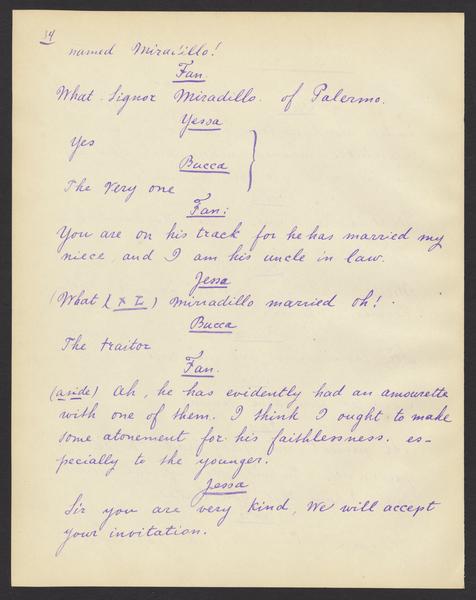 34
named Miradillo!
Fan.
What Signor Miradillo. of Palermo.
Yessa
Yes
Bucca
The very one
Fan:
You are on his track for he has married my
niece, and I am his uncle in law.
Jessa
(What Mirradillo married oh!
Bucca
The traitor
Fan.
(aside) Ah, he has evidently had an amourette
with one of them. I think I ought to make
some atonement for his faithlessness. es-
pecially to the younger.
Jessa
Sir you are very kind, We will accept
your invitation.